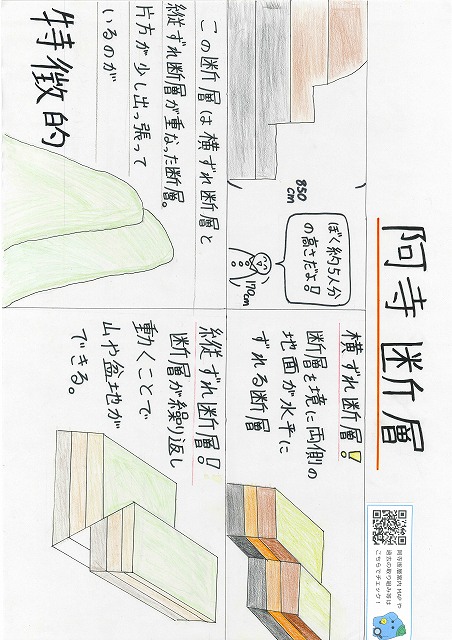 阿寺断層
850cm
ぼく約5人分
の高さだよ!
170cm
この断層は横ずれ断層と
縦ずれ断層が重なった断層。
片方が少し出っ張って
いるのが
特徴的
横ずれ断層!
断層を境に両側の
地面が水平に
ずれる断層
縦ずれ断層!
断層が繰り返し
動くことで
山や盆地が
できる。
阿寺断層案内MAPや
過去の取り組み等は
こちらでチェック!